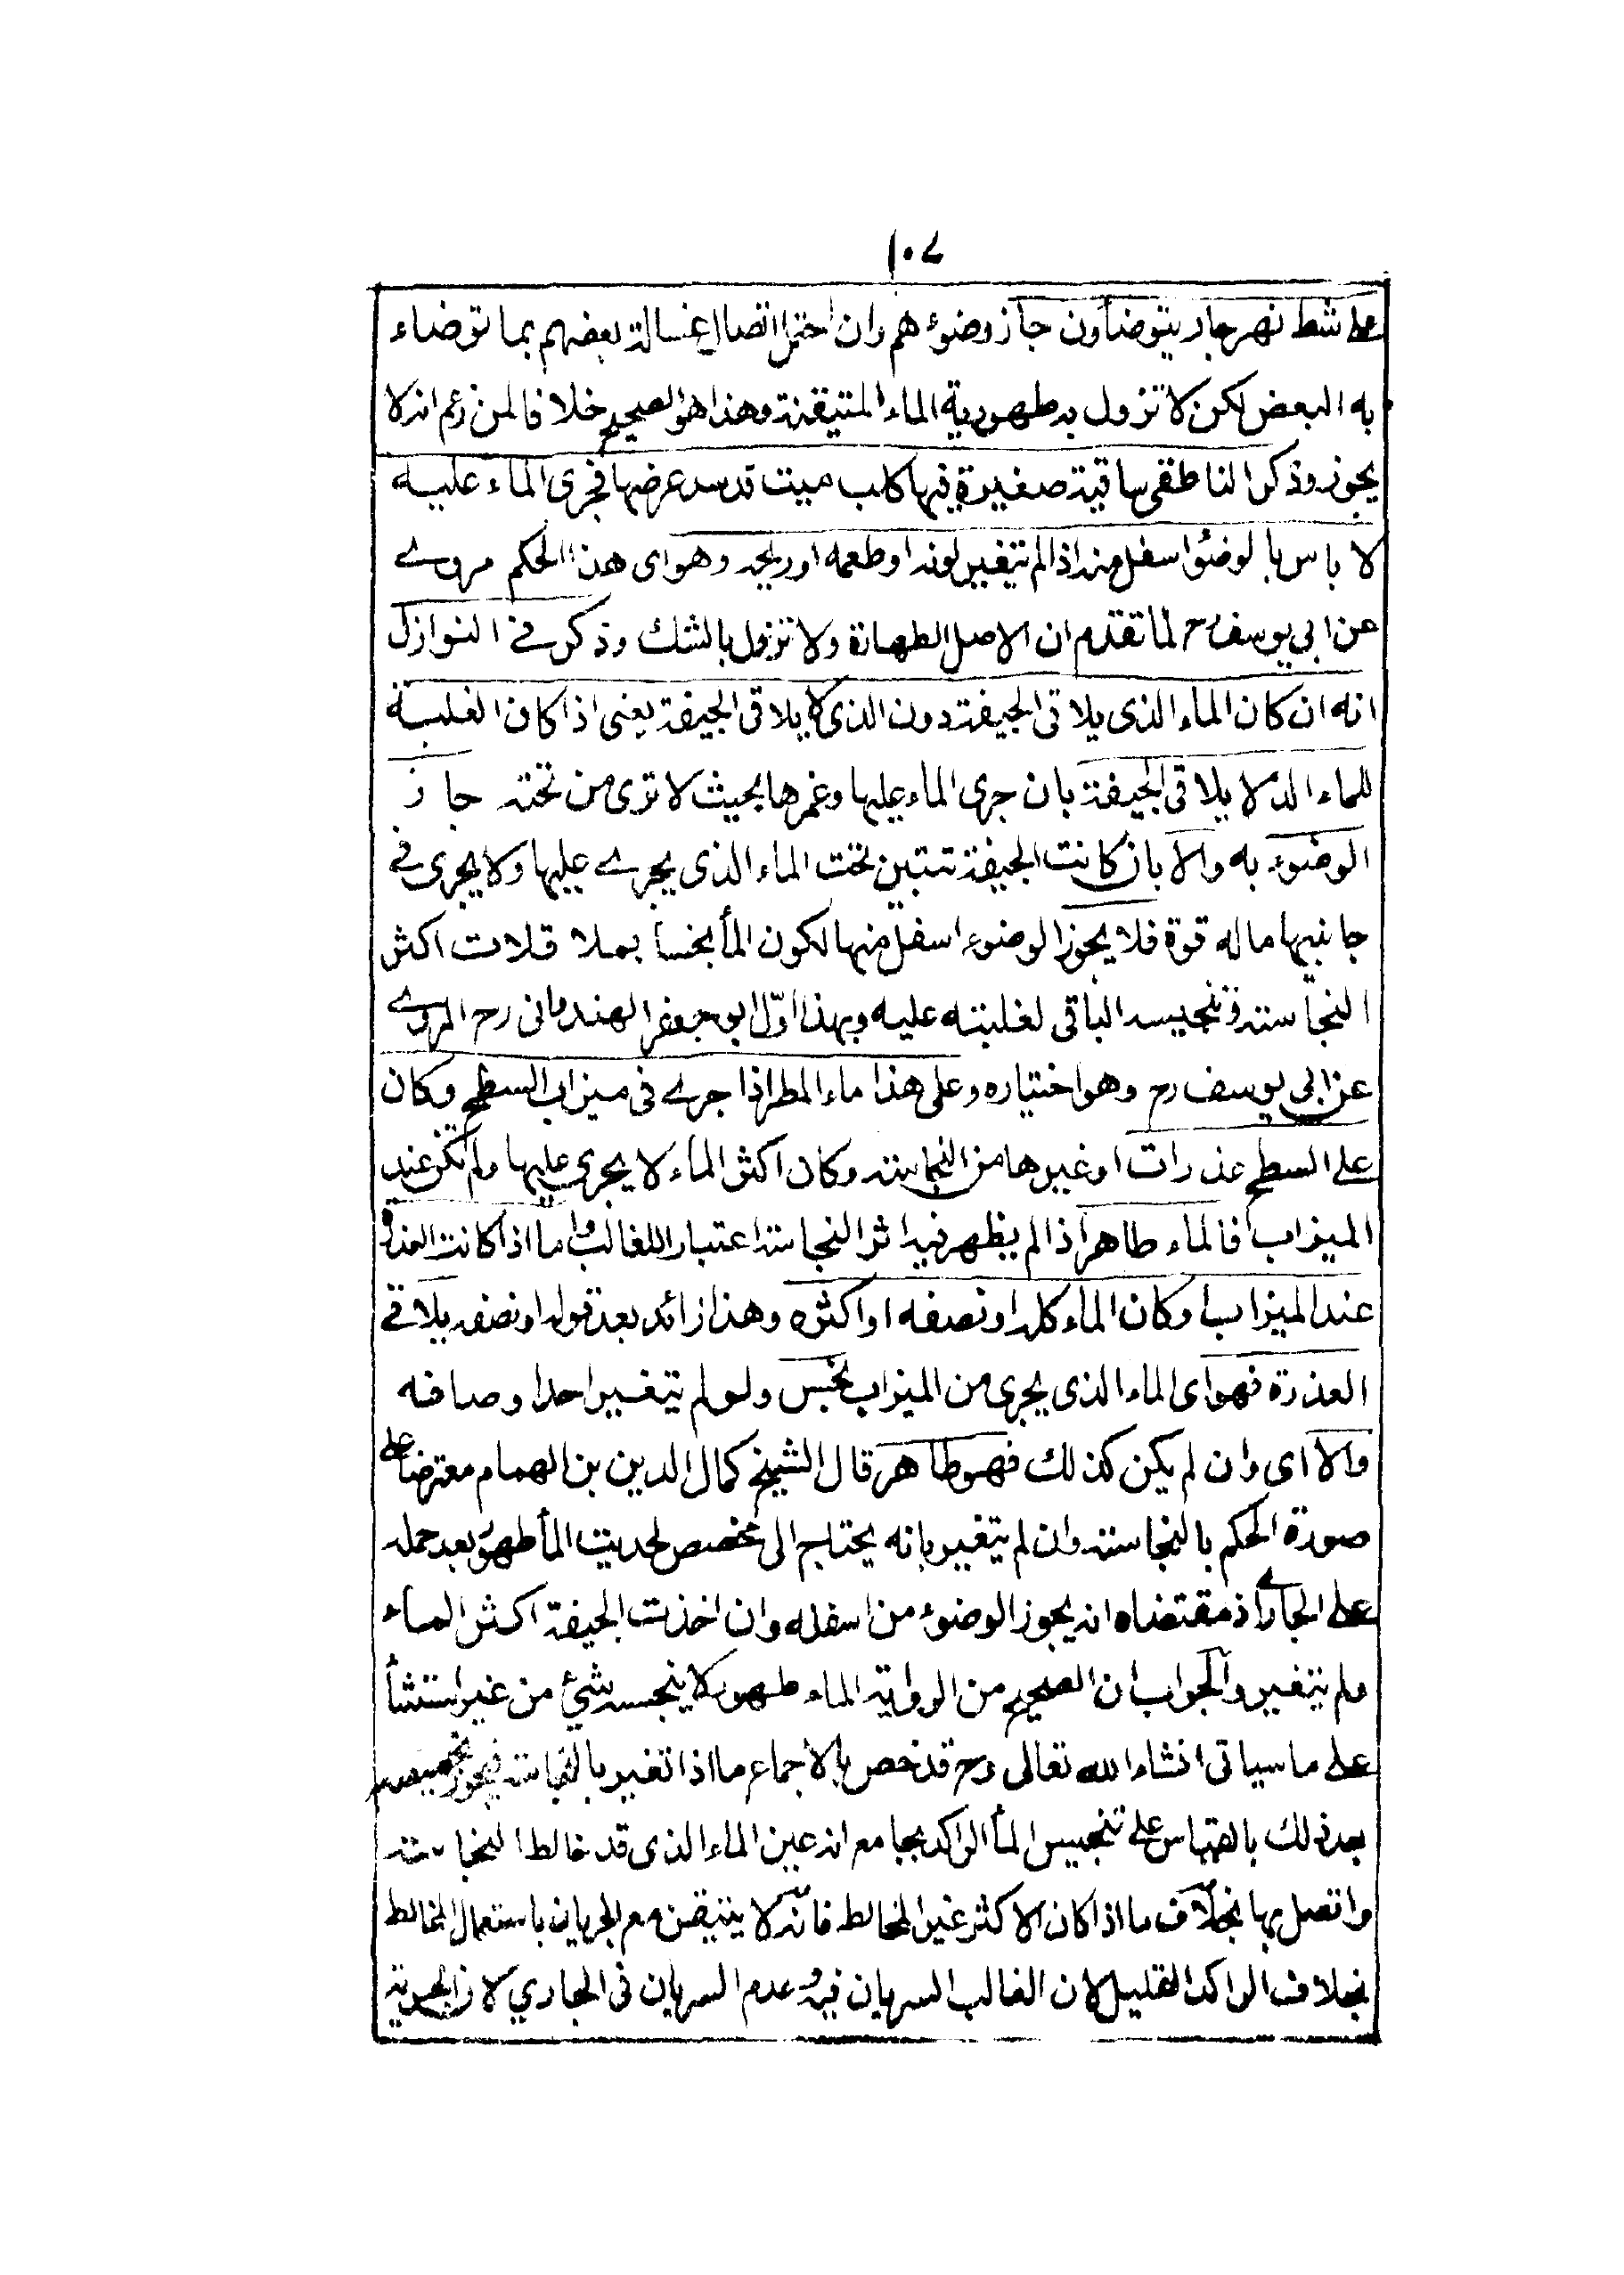 ١٠٧
على شط نهر جار يتوضأون جاز وضوءهم وان احتمل اتصال غسالة بعضهم بما توضاء
به البعض لكن لا تزول به طهورية الماء المتيقنة وهذا هو الصحيح خلافا لمن زعم انه لا
يجوز وذكر الناطقى ساقية صغيرة فيها كلب ميت قد سد عرضها فجرى الماء عليه
لا باس بالوضوٴ اسفل منه اذا لم يتغير لونه او طعمه او ريحه وهو اى هذا الحكم مروے
عن ابي يوسف رح لما تقدم ان الاصل الطهارة ولا تزول بالشك وذكر فے النوازل
انه ان كان الماء الذى يلاقى الجيفة دون الذى لا يلاقى الجيفة يعنى اذا كان الغلبة
للماء الذى لا يلاقى الجيفة بان جرى الماء عليها وغمرها بحيث لا ترى من تحته جاز
الوضوء به والا بان كانت الجيفة تتبين تحت الماء الذى يجرے عليها ولا يجرى فے
جانبيها ماله قوة فلا يجوز الوضوء اسفل منها لكون المأ نجسا بملاقات اكثر
النجاسة وتنجيسه الباقى لغلبته عليه وبهذا اوّل ابو جعفر الهندوانى رح المروے
عن ابى يوسف رح وهو اختياره وعلى هذا ماء المطر اذا جرے فى ميزاب السطح وكان
على السطح عذرات او غيرها من النجاسة وكان اكثر الماء لا يجرى عليها ولم تكن عند
الميزاب فالماء طاهر اذا لم يظهر فيه اثر النجاسة اعتبارا للغالب واما اذا كانت العذرة
عند الميزاب او كان الماء كله او نصفه او اكثره وهذا زائد بعد قوله او نصفه يلاقے
العذرة فهو اى الماء الذى يجرى من الميزاب نجس ولو لم يتغير احد اوصافه
والا اى وان لم يكن كذلك فهو طاهر قال الشيخ كمال الدين بن الهمام معترضا على
صورة الحكم بالنجاسة وان لم يتغير بانه يحتاج الى مخصص لحديث المأ طهور بعد حمله
على الجارے اذ مقتضاه انه يجوز الوضوء من اسفله وان اخذت الجيفة اكثر الماء
ولم يتغير والجواب ان الصحيح من الرواية الماء طهور لا ينجسه شئ من غير استثنأ
على ما سياتى انشاء الله تعالى وح قد خص بالاجماع ما اذا تغير بالنجاسة فيجوز تخصيصه
بعد ذلك بالقياس على تنجيس المأ الراكد بجامع انه عين الماء الذى قد خالط النجاسة
واتصل بها بخلاف ما اذا كان الاكثر غير المخالط فانه لا يتيقن مع الجريان باستعمال المخالط
بخلاف الراكد القليل لان الغالب السريان فيه وعدم السريان فى الجاري لان الجرية